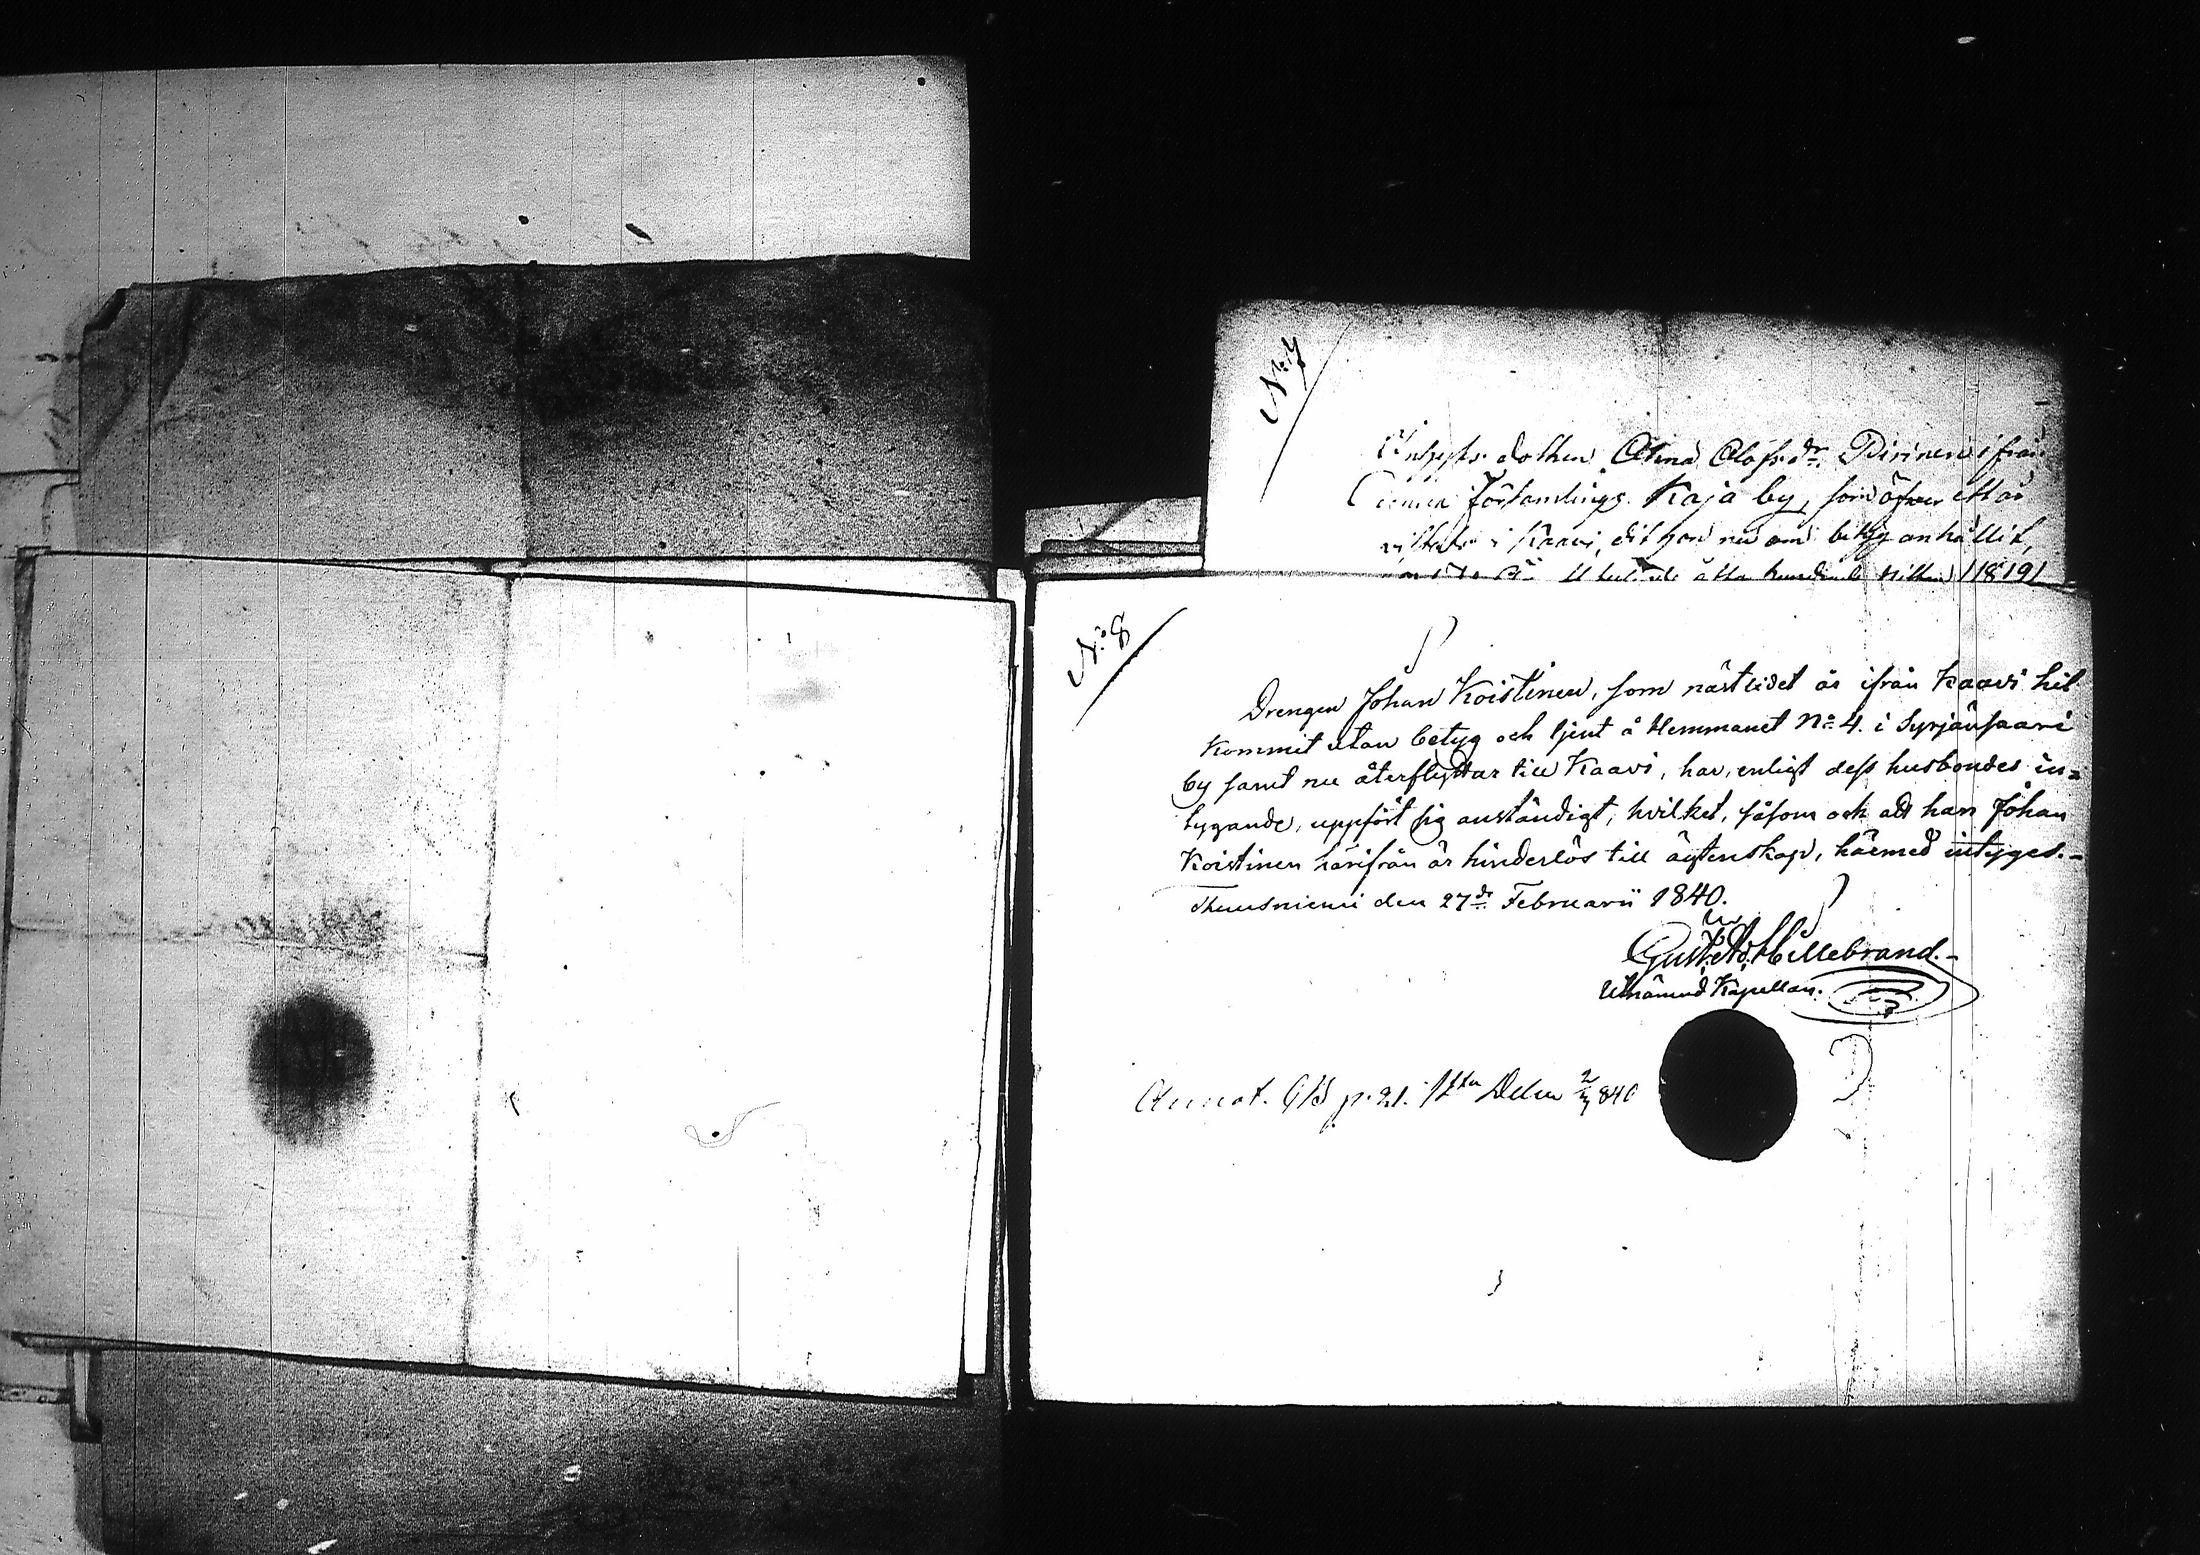 No 7
Inhyses dottren Anna Olofsdr. Pirinen ifrån
denna Församlings Kaja by, som öfver ett år
vistats i Kaavi, dit hon nu om betyg anhållit,
åtta hundrade nitton /1819/
No 8
Drengen Johan Koistinen, som nästledet år ifrån Kaavi hit
kommit utan betyg och tjent å Hemmanet No 4. i Syrjänsaari
by samt nu återflyttar till Kaavi, har, enligt dess husbondes in-
tygande, uppfört sig anständigt, hvilket, såsom och att han Johan
Koistinen härifrån är hinderlös till ägtenskap, härmed intyges.-
Thuusniemi den 27de Februarii 1840.
Gust. Ad. Hillebrand.-
Utnämnd Kapellan.
Annot. p. 21. 1sta Delen 840